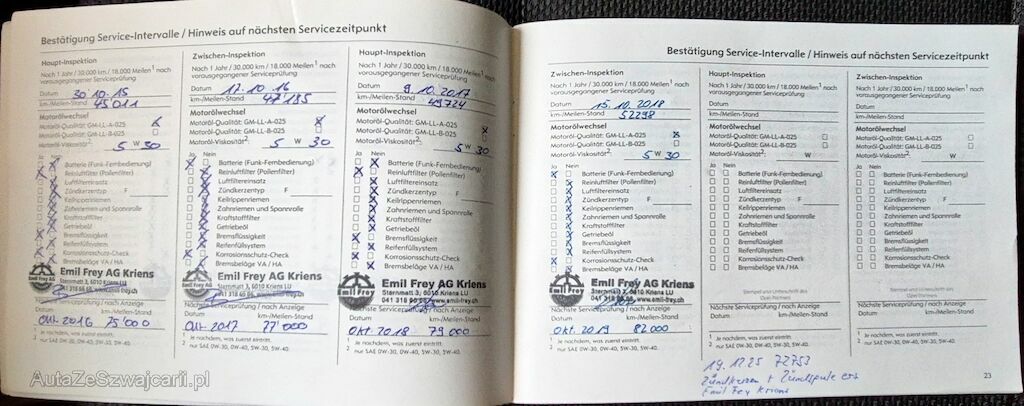 Bestätigung Service-Intervalle / Hinweis auf nächsten Servicezeitpunkt
Haupt-Inspektion
Nach 1 Jahr / 30.000 km / 18.000 Meilen¹ nach
vorausgegangener Serviceprüfung
Datum 30.10.15
km-/Meilen-Stand 45011
Motorölwechsel
Motoröl-Qualität: GM-LL-A-025 x
Motoröl-Qualität: GM-LL-B-025
Motoröl-Viskosität²: 5 W 30
Ja Nein
Batterie (Funk-Fernbedienung)
Reinluftfilter (Pollenfilter)
Luftfiltereinsatz
Zündkerzentyp F
Keilrippenriemen
Zahnriemen und Spannrolle
Kraftstoffilter
Getriebeöl
Bremsflüssigkeit
Reifenfüllsystem
Korrosionsschutz-Check
Bremsbeläge VA / HA
Emil Frey AG Kriens
Sternmatt 3, 6010 Kriens LU
Nächste Serviceprüfung / nach Anzeige
Datum km-/Meilen-Stand
Okt-2016 75'000
1 Je nachdem, was zuerst eintritt.
2 nur SAE 0W-30, 0W-40, 5W-30, 5W-40.
Zwischen-Inspektion
Nach 1 Jahr / 30.000 km / 18.000 Meilen¹ nach
vorausgegangener Serviceprüfung
Datum 17.10.16
km-/Meilen-Stand 47195
Motorölwechsel
Motoröl-Qualität: GM-LL-A-025 x
Motoröl-Qualität: GM-LL-B-025
Motoröl-Viskosität²: 5 W 30
Ja Nein
Batterie (Funk-Fernbedienung)
Reinluftfilter (Pollenfilter)
Luftfiltereinsatz
Zündkerzentyp F
Keilrippenriemen
Zahnriemen und Spannrolle
Kraftstoffilter
Getriebeöl
Bremsflüssigkeit
Reifenfüllsystem
Korrosionsschutz-Check
Bremsbeläge VA / HA
Emil Frey AG Kriens
Sternmatt 3, 6010 Kriens LU
Nächste Serviceprüfung / nach Anzeige
Datum km-/Meilen-Stand
Okt-2017 77'000
1 Je nachdem, was zuerst eintritt.
2 nur SAE 0W-30, 0W-40, 5W-30, 5W-40.
Haupt-Inspektion
Nach 1 Jahr / 30.000 km / 18.000 Meilen¹ nach
vorausgegangener Serviceprüfung
Datum 9.10.2017
km-/Meilen-Stand 49724
Motorölwechsel
Motoröl-Qualität: GM-LL-A-025 x
Motoröl-Qualität: GM-LL-B-025
Motoröl-Viskosität²: 5 W 30
Ja Nein
Batterie (Funk-Fernbedienung)
Reinluftfilter (Pollenfilter)
Luftfiltereinsatz
Zündkerzentyp F
Keilrippenriemen
Zahnriemen und Spannrolle
Kraftstoffilter
Getriebeöl
Bremsflüssigkeit
Reifenfüllsystem
Korrosionsschutz-Check
Bremsbeläge VA / HA
Emil Frey AG Kriens
Sternmatt 3, 6010 Kriens LU
041 318 60 66, www.emil-frey.ch
Nächste Serviceprüfung / nach Anzeige
Datum km-/Meilen-Stand
Okt. 2018 79 000
1 Je nachdem, was zuerst eintritt.
2 nur SAE 0W-30, 0W-40, 5W-30, 5W-40.
Bestätigung Service-Intervalle / Hinweis auf nächsten Servicezeitpunkt
Zwischen-Inspektion
Nach 1 Jahr / 30.000 km / 18.000 Meilen¹ nach
vorausgegangener Serviceprüfung
Datum 15.10.2018
km-/Meilen-Stand 52298
Motorölwechsel
Motoröl-Qualität: GM-LL-A-025 x
Motoröl-Qualität: GM-LL-B-025
Motoröl-Viskosität²: 5 W 30
Ja Nein
Batterie (Funk-Fernbedienung)
Reinluftfilter (Pollenfilter)
Luftfiltereinsatz
Zündkerzentyp F
Keilrippenriemen
Zahnriemen und Spannrolle
Kraftstoffilter
Getriebeöl
Bremsflüssigkeit
Reifenfüllsystem
Korrosionsschutz-Check
Bremsbeläge VA / HA
Emil Frey AG Kriens
Sternmatt 3, 6010 Kriens LU
041 318 60 66, www.emil-frey.ch
Nächste Serviceprüfung / nach Anzeige
Datum km-/Meilen-Stand
Okt. 2019 82 000
1 Je nachdem, was zuerst eintritt.
2 nur SAE 0W-30, 0W-40, 5W-30, 5W-40.
Haupt-Inspektion
Nach 1 Jahr / 30.000 km / 18.000 Meilen¹ nach
vorausgegangener Serviceprüfung
Datum
km-/Meilen-Stand
Motorölwechsel
Motoröl-Qualität: GM-LL-A-025
Motoröl-Qualität: GM-LL-B-025
Motoröl-Viskosität²: W
Ja Nein
Batterie (Funk-Fernbedienung)
Reinluftfilter (Pollenfilter)
Luftfiltereinsatz
Zündkerzentyp F
Keilrippenriemen
Zahnriemen und Spannrolle
Kraftstoffilter
Getriebeöl
Bremsflüssigkeit
Reifenfüllsystem
Korrosionsschutz-Check
Bremsbeläge VA / HA
Stempel und Unterschrift des
Opel Partners
Nächste Serviceprüfung / nach Anzeige
Datum km-/Meilen-Stand
1 Je nachdem, was zuerst eintritt.
2 nur SAE 0W-30, 0W-40, 5W-30, 5W-40.
Zwischen-Inspektion
Nach 1 Jahr / 30.000 km / 18.000 Meilen¹ nach
vorausgegangener Serviceprüfung
Datum
km-/Meilen-Stand
Motorölwechsel
Motoröl-Qualität: GM-LL-A-025
Motoröl-Qualität: GM-LL-B-025
Motoröl-Viskosität²: W
Ja Nein
Batterie (Funk-Fernbedienung)
Reinluftfilter (Pollenfilter)
Luftfiltereinsatz
Zündkerzentyp F
Keilrippenriemen
Zahnriemen und Spannrolle
Kraftstoffilter
Getriebeöl
Bremsflüssigkeit
Reifenfüllsystem
Korrosionsschutz-Check
Bremsbeläge VA / HA
Stempel und Unterschrift des
Opel Partners
Nächste Serviceprüfung / nach Anzeige
Datum km-/Meilen-Stand
1 Je nachdem, was zuerst eintritt.
2 nur SAE 0W-30, 0W-40, 5W-30, 5W-40.
19.12.25 72753
Zündkerzen + Zündspule ers
Emil Frey Kriens
23
AutaZeSzwajcarii.pl